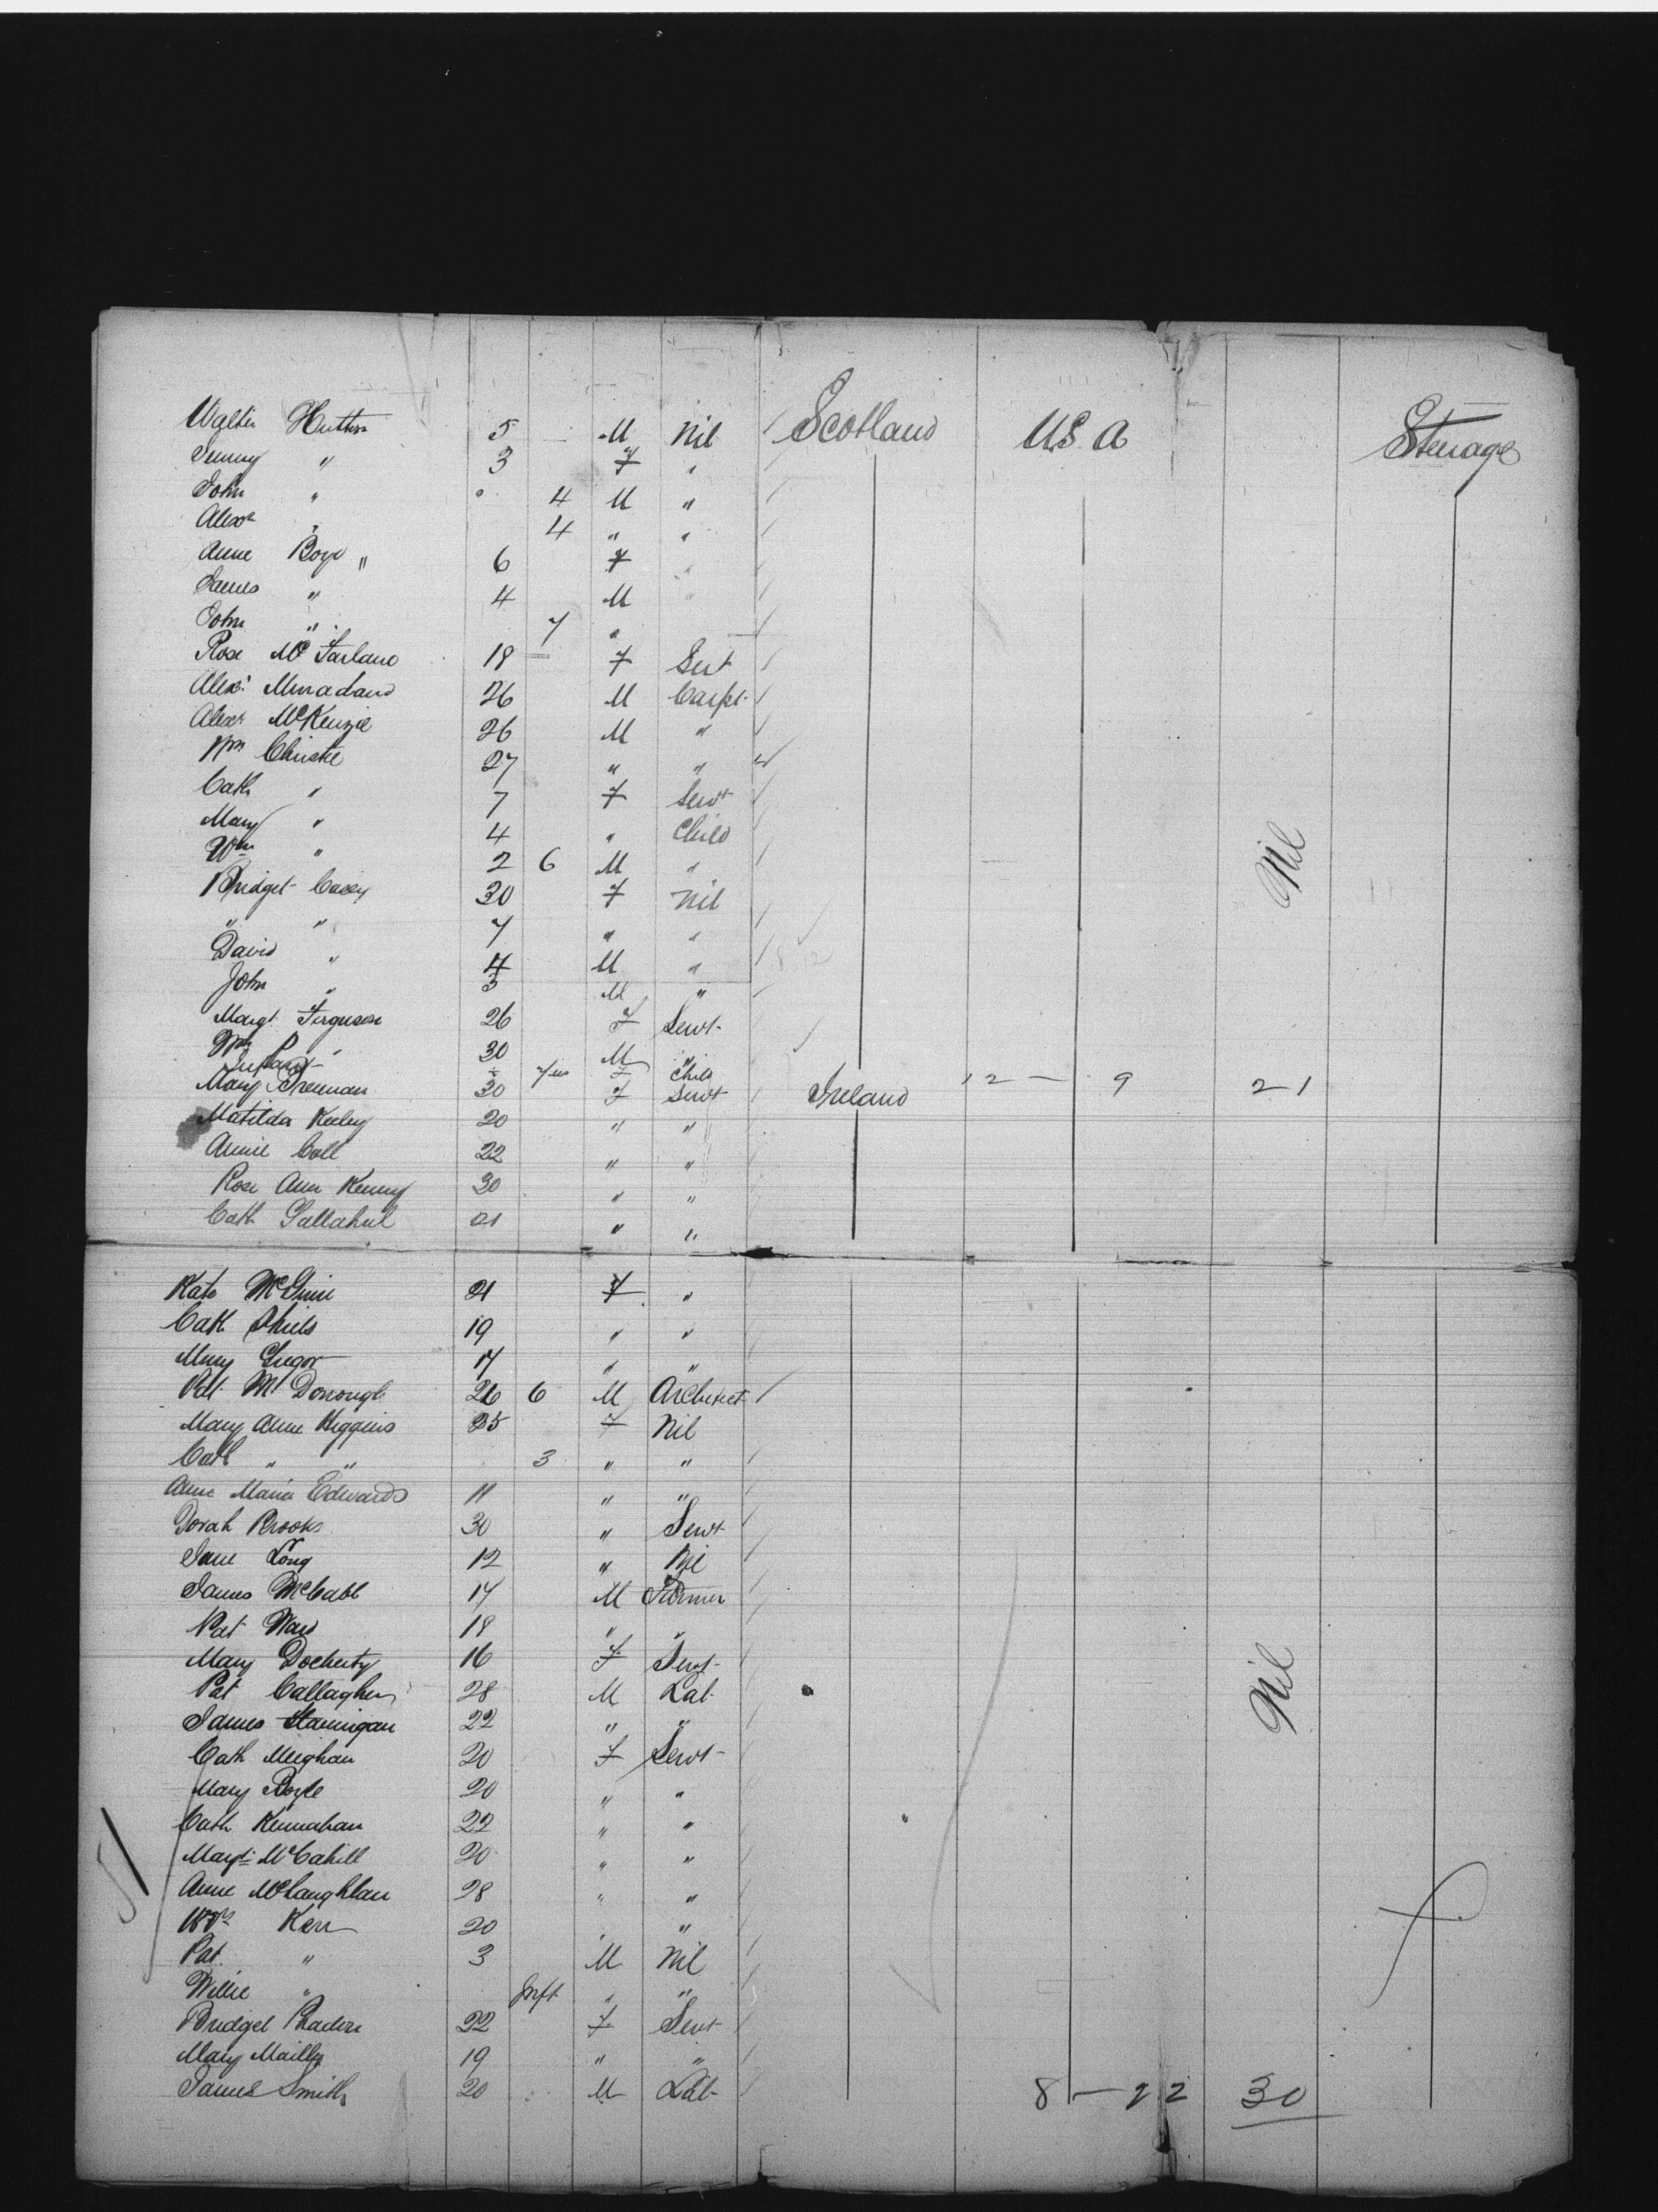 Walter Hutton 5 M Nil Scotland USA Steerage
Jenny " 3 F "
John " 4 M "
Alexr " 4 " "
Anne Boyd " 6 F "
James " 4 M "
John " 7 "
Rose McFarland 18 F Sert
Alexr 26 M Carpt.
Alexr McKenzie 26 M "
Wm Christie 27 " "
Cath " 7 F Servt
Mary " 4 " Child
Wm " 2 6 M "
Bridget Casey 30 F Nil
" " 7 " "
David " 4 M "
John " 3 M "
Margt Ferguson 26 F Servt
Wm " 30 M "
Infant F Child
Mary Brennan 30 F Servt Ireland 12 — 9 21
Matilda Keeley 20 " "
Annie Coll 22 " "
Rose Ann Kenny 30 " "
Cath 21 " "
Nil
Kate McGuire 21 F "
Cath Shiels 19 " "
Mary Gregor 17 " "
Pat McDonough 26 6 M Architect
Mary Anne Higgins 25 F Nil
Cath " " 3 " "
Anne Maria Edwards 11 " "
Dorah Brooks 30 " Servt
Jane Long 12 " Nil
James McCabe 17 M Farmer
Pat Ward 18 " "
Mary Docherty 16 F Servt
Pat Callaghen 28 M Lab
James Hannigan 22 " "
Cath Meighan 20 F Servt
Mary Boyle 20 " "
Cath Kennahan 22 " "
Margt McCahill 20 " "
Anne McLaughlan 28 " "
Kerr 20 " "
Pat " 3 M Nil
Willie " Inft " "
Bridget 22 F Servt
Mary 19 " "
James Smith 20 M Lab 8 — 22 30
Nil